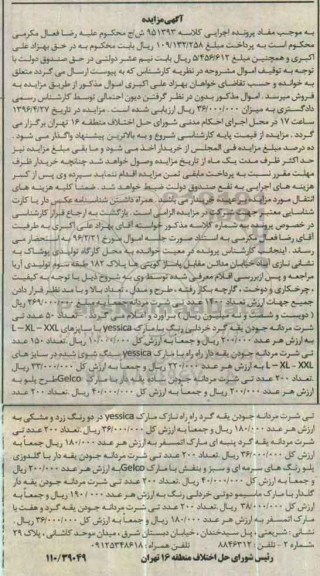 آگهی مزایده
به موجب مفاد پرونده اجرایی کلاسه ۹۵۱۳۹۳ ش/ح محکوم علیه رضا فعال مکرمی
محکوم است به پرداخت مبلغ ۱۰۹/۱۳۲/۲۵۸ ریال بابت محکوم به در حق بهزاد علی
اکبری و همچنین مبلغ ۵/۴۵۶/۶۱۲ ریال بابت نیم عشر دولتی در حق صندوق دولت با
توجه به توقیف اموال مشروحه در نظریه کارشناس که به پیوست ارسال می گردد متعلق
به خوانده و حسب تقاضای خواهان بهزاد علی اکبری اموال مذکور از طریق مزایده به
فروش میرسد. اموال مذکور بدون در نظر گرفتن دیون احتمالی توسط کارشناس رسمی
دادگستری به میزان ۳۶/۰۰۰/۰۰۰ ریال ارزیابی شده است. مزایده در تاریخ ۱۳۹۶/۴/۲۷
ساعت ۱۷ در محل اجرای احکام مدنی شورای حل اختلاف منطقه ۱۶ تهران برگزار می
گردد. مزایده از قیمت پایه کارشناسی شروع و به بالاترین پیشنهاد واگذار می شود.
ده درصد مبلغ مزایده فی المجلس از خریدار اخذ می شود و ما بقی مبلغ مزایده نیز
حداکثر ظرف مدت یک ماه از تاریخ مزایده وصول خواهد شد چنانچه خریدار ظرف
مهلت مقرر نسبت به پرداخت مابقی ثمن مزایده اقدام ننماید سپرده وی پس از کسر
هزینه های اجرایی به نفع صندوق دولت ضبط خواهد شد. ضمناً کلیه هزینه های
انتقال مورد مزایده بر عهده خریدار می باشد. همراه داشتن شناسنامه عکس دار یا کارت
شناسایی معتبر جهت شرکت در مزایده الزامی است. بازگشت به ارجاع قرار کارشناسی
در خصوص پرونده به شماره کلاسه مذکور خواسته آقای بهزاد علی اکبری به طرفیت
آقای رضا فعال مکرمی به استناد صورت جلسه اموال مورخ ۹۶/۲/۲۱ به استحضار می
رساند. اینجانب کارشناس پرونده در معیت خوانده به محل کارگاه تولیدی پوشاک به
نشانی نازی آباد خیابان مدائن مقابل پاساژ کویتی ها پلاک ۱۸۲ طبقه سوم تولیدی آریا
مراجعه و پس از بررسی اقلام معرفی شده توسط وی به شروح ذیل با توجه به کیفیت
، چرخکاری و دوخت، گارچه بکار رفته، طرح و مدل، تعداد بالا و با مد نظر قرار دادن
جمیع جهات ارزش تعداد ۱۴۰۰ عدد تی شرت مردانه جمعاً به مبلغ ۲۶۹/۰۰۰/۰۰۰ ریال
(دویست و شصت و نه میلیون ریال) برآورد و اعلام می گردد. تعداد ۵۰ عدد تی
شرت مردانه جودن یقه گرد خردلی رنگ با مارک yessica با سایزهای L - XL - XXL
به ارزش هر عدد ۲۰۰/۰۰۰ ریال و جمعاً به ارزش کل ۱۰/۰۰۰/۰۰۰ ریال. تعداد ۱۵۰ عدد
تی شرت مردانه جودن یقه دار راه راه با مارک yessica سنگ شوی شده در سایزهای
L - XL - XXL به ارزش هر عدد ۲۲۰/۰۰۰ ریال و جمعاً به ارزش کل ۳۳/۰۰۰/۰۰۰ ریال
. تعداد ۲۰۰ عدد تی شرت مردانه جودن ساده یقه گرد با مارک Gelco طرح پلو به
ارزش هر عدد ۲۰۰/۰۰۰ ریال و جمعاً به ارزش کل ۴۰/۰۰۰/۰۰۰ ریال. تعداد ۲۰۰ عدد
تی شرت مردانه جودن یقه گرد راه راه نازک مارک yessica در دو رنگ زرد و مشکی به
ارزش هر عدد ۱۸۰/۰۰۰ ریال و جمعاً به ارزش کل ۳۶/۰۰۰/۰۰۰ ریال. تعداد ۲۰۰ عدد تی
شرت مردانه یقه گرد پنبه ای مارک اتمسفر به ارزش هر عدد ۱۸۰/۰۰۰ ریال و جمعاً به
ارزش کل ۳۶/۰۰۰/۰۰۰ ریال. تعداد ۲۰۰ عدد تی شرت مردانه جودن یقه دار با گلدوزی
پلو رنگ های سرمه ای و سبز و بنفش با مارک Gelco به ارزش هر عدد ۲۰۰/۰۰۰ ریال
و جمعاً به ارزش کل ۴۰/۰۰۰/۰۰۰ ریال. تعداد ۲۰۰ عدد تی شرت مردانه جودن یقه دار
گلدار با مارک ماسیمو دوتی خردلی رنگ به ارزش هر عدد ۱۹۰/۰۰۰ ریال و جمعاً به
ارزش کل ۳۸/۰۰۰/۰۰۰ ریال. تعداد ۲۰۰ عدد تی شرت مردانه جودن یقه گرد و هفت با
مارک اتمسفر به ارزش هر عدد ۱۸۰/۰۰۰ ریال و جمعاً به ارزش کل ۳۶/۰۰۰/۰۰۰ ریال.
نشانی: شریعتی، پل سیدخندان، خیابان دبستان شرق، میدان موحد کاشانی، پلاک ۲۹
شماره ۲ - تلفن: ۸۸۴۶۳۱۲ تلفن همراه: ۰۹۱۲۵۳۴۸۶۱۸
رئیس شورای حل اختلاف منطقه ۱۶ تهران ۱۱۰/۳۹۰۴۹